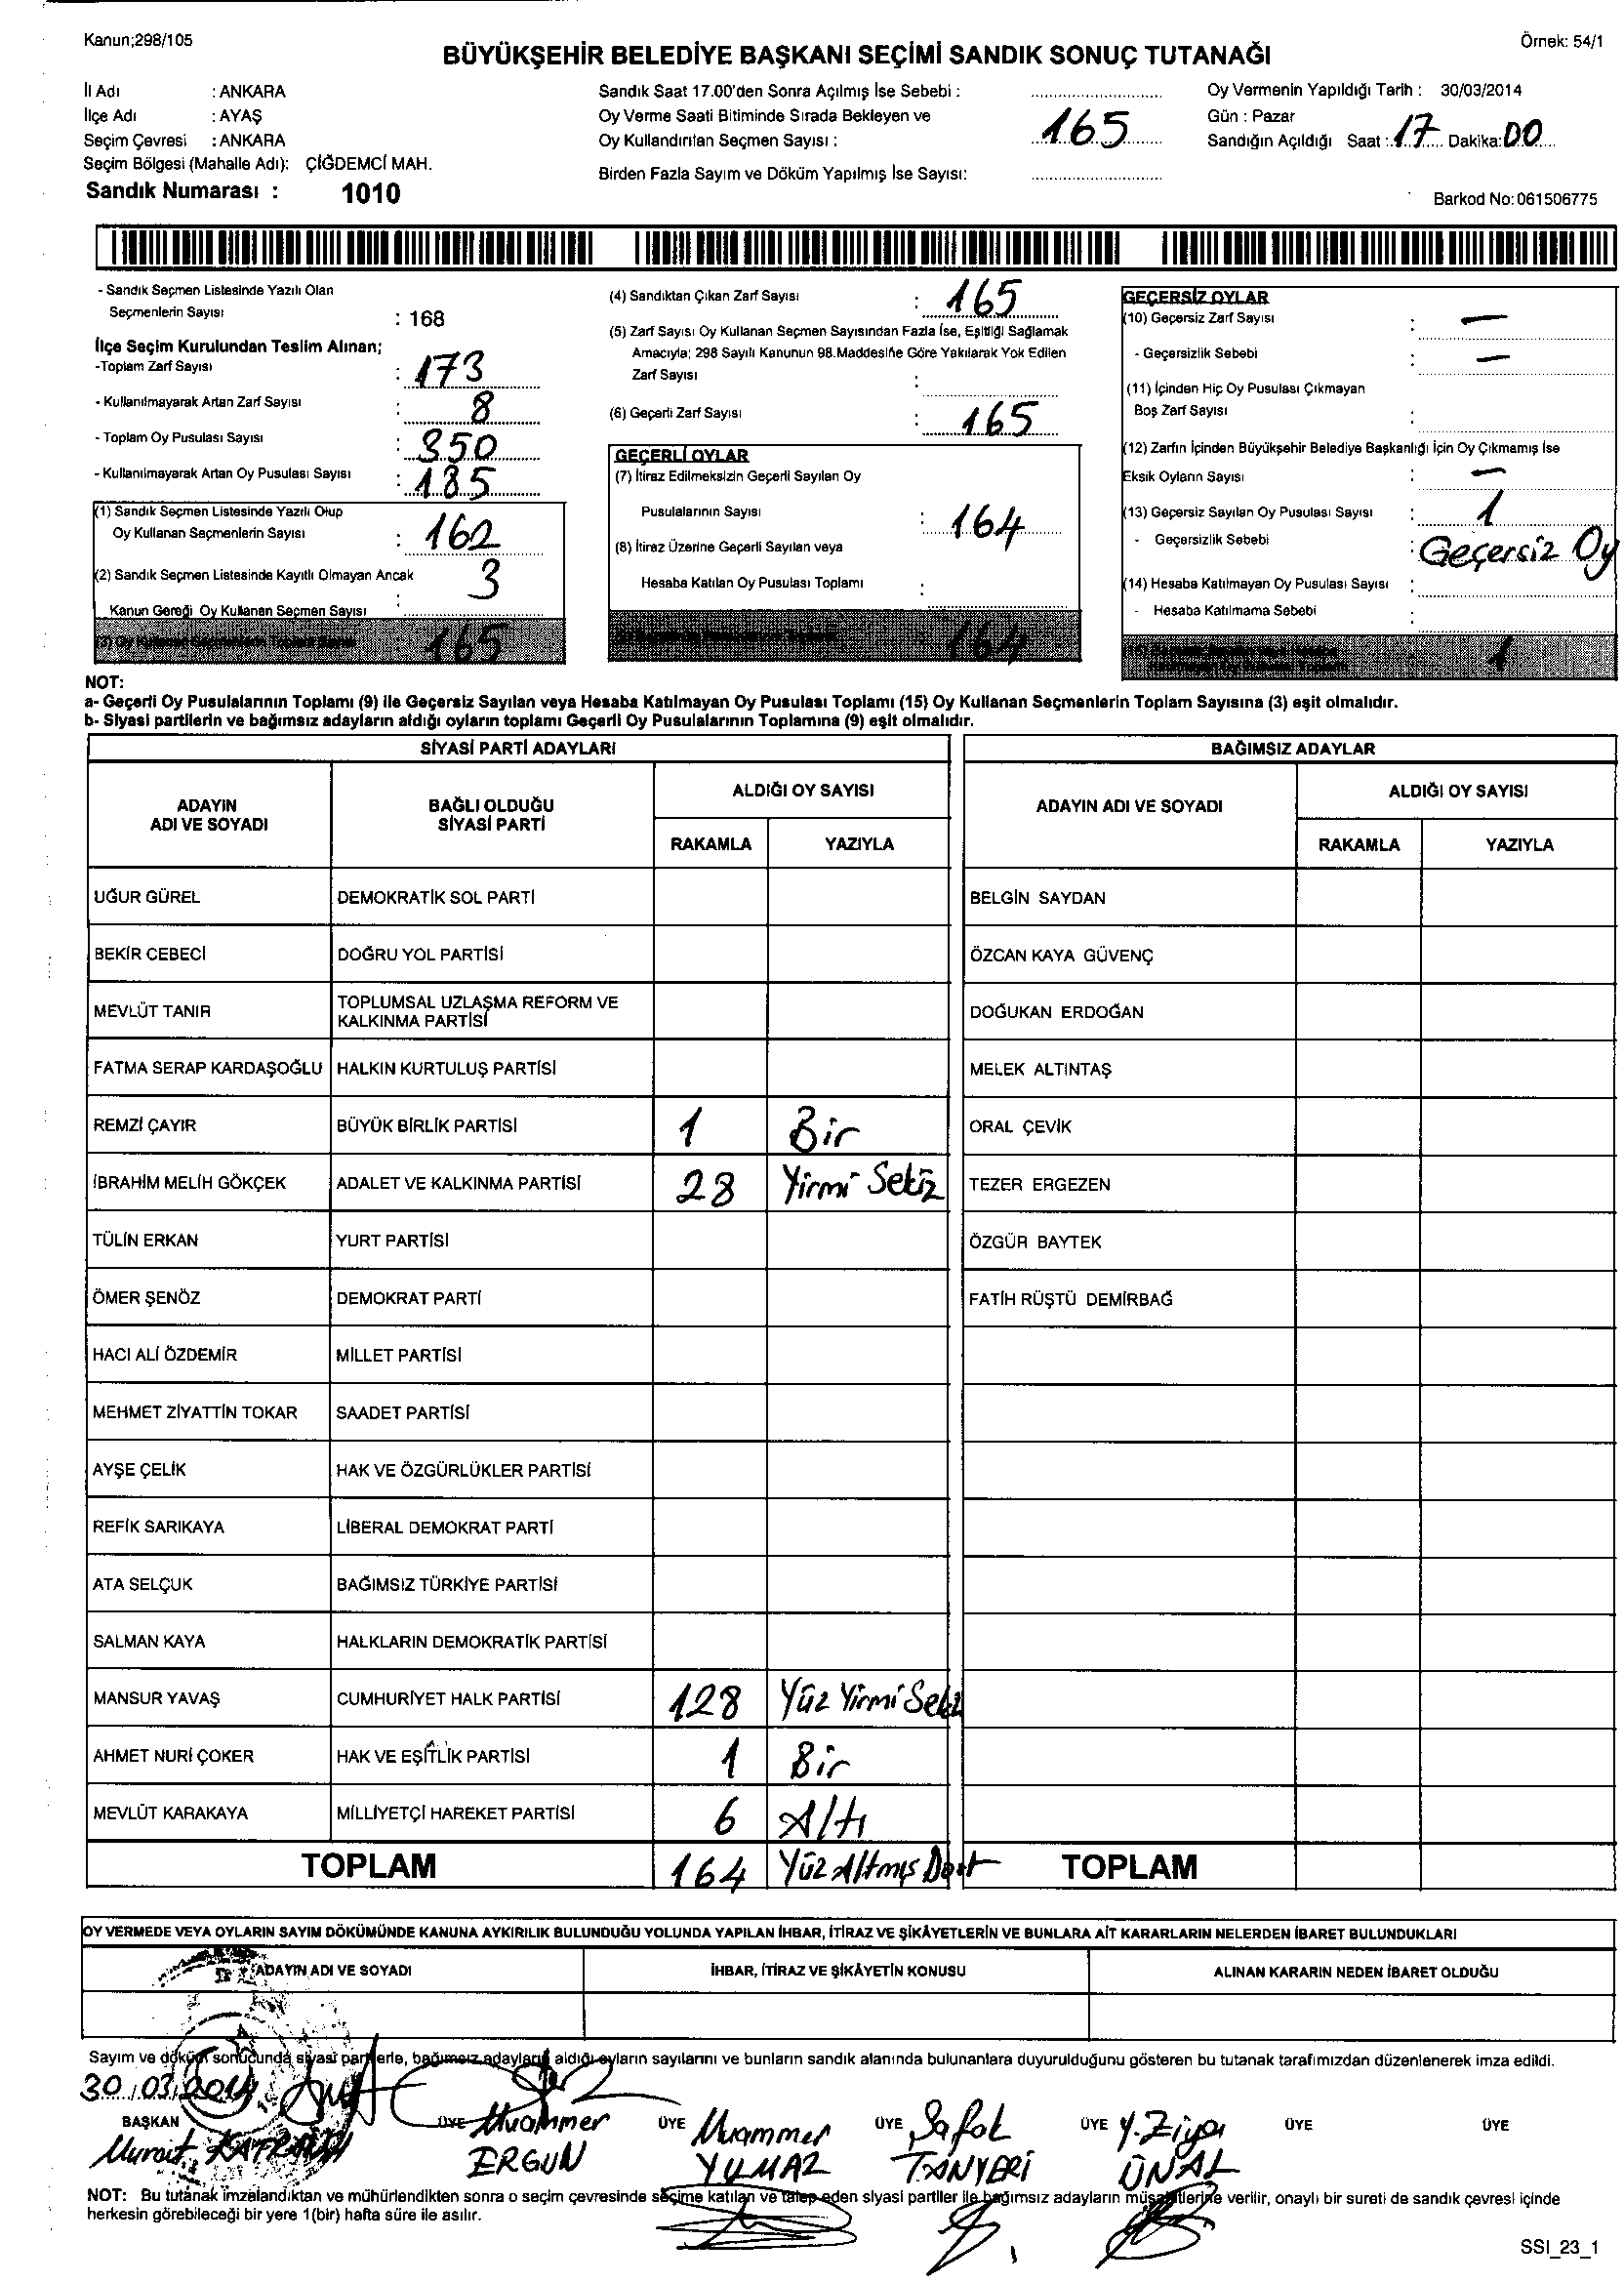 Kanun;298/105
Örnek: 54/1
BÜYÜKŞEHİR BELEDİYE BAŞKANI SEÇİMİ SANDIK SONUÇ TUTANAĞI
İl Adı : ANKARA
İlçe Adı : AYAŞ
Seçim Çevresi : ANKARA
Seçim Bölgesi (Mahalle Adı): ÇİĞDEMCİ MAH.
Sandık Numarası : 1010
Sandık Saat 17.00'den Sonra Açılmış İse Sebebi :
Oy Verme Saati Bitiminde Sırada Bekleyen ve
Oy Kullandırılan Seçmen Sayısı : 165
Birden Fazla Sayım ve Döküm Yapılmış İse Sayısı:
Oy Vermenin Yapıldığı Tarih : 30/03/2014
Gün : Pazar
Sandığın Açıldığı Saat : 17 Dakika: 00
Barkod No: 061506775
- Sandık Seçmen Listesinde Yazılı Olan
Seçmenlerin Sayısı : 168
İlçe Seçim Kurulundan Teslim Alınan;
-Toplam Zarf Sayısı : 173
- Kullanılmayarak Artan Zarf Sayısı : 8
- Toplam Oy Pusulası Sayısı : 350
- Kullanılmayarak Artan Oy Pusulası Sayısı : 185
(1) Sandık Seçmen Listesinde Yazılı Olup
Oy Kullanan Seçmenlerin Sayısı : 162
(2) Sandık Seçmen Listesinde Kayıtlı Olmayan Ancak
Kanun Gereği Oy Kullanan Seçmen Sayısı : 3
(3) Oy Kullanan Seçmenlerin Toplam Sayısı : 165
(4) Sandıktan Çıkan Zarf Sayısı : 165
(5) Zarf Sayısı Oy Kullanan Seçmen Sayısından Fazla İse, Eşitliği Sağlamak
Amacıyla; 298 Sayılı Kanunun 98.Maddesine Göre Yakılarak Yok Edilen
Zarf Sayısı :
(6) Geçerli Zarf Sayısı : 165
GEÇERLİ OYLAR
(7) İtiraz Edilmeksizin Geçerli Sayılan Oy
Pusulalarının Sayısı : 164
(8) İtiraz Üzerine Geçerli Sayılan veya
Hesaba Katılan Oy Pusulası Toplamı :
: 164
GEÇERSİZ OYLAR
(10) Geçersiz Zarf Sayısı : —
- Geçersizlik Sebebi : —
(11) İçinden Hiç Oy Pusulası Çıkmayan
Boş Zarf Sayısı :
(12) Zarfın İçinden Büyükşehir Belediye Başkanlığı İçin Oy Çıkmamış İse
Eksik Oyların Sayısı : —
(13) Geçersiz Sayılan Oy Pusulası Sayısı : 1
- Geçersizlik Sebebi : Geçersiz Oy
(14) Hesaba Katılmayan Oy Pusulası Sayısı :
- Hesaba Katılmama Sebebi :
: 1
NOT:
a- Geçerli Oy Pusulalarının Toplamı (9) ile Geçersiz Sayılan veya Hesaba Katılmayan Oy Pusulası Toplamı (15) Oy Kullanan Seçmenlerin Toplam Sayısına (3) eşit olmalıdır.
b- Siyasi partilerin ve bağımsız adayların aldığı oyların toplamı Geçerli Oy Pusulalarının Toplamına (9) eşit olmalıdır.
SİYASİ PARTİ ADAYLARI BAĞIMSIZ ADAYLAR
ADAYIN ADI VE SOYADI BAĞLI OLDUĞU SİYASİ PARTİ ALDIĞI OY SAYISI RAKAMLA YAZIYLA ADAYIN ADI VE SOYADI ALDIĞI OY SAYISI RAKAMLA YAZIYLA
UĞUR GÜREL DEMOKRATİK SOL PARTİ BELGİN SAYDAN
BEKİR CEBECİ DOĞRU YOL PARTİSİ ÖZCAN KAYA GÜVENÇ
MEVLÜT TANIR TOPLUMSAL UZLAŞMA REFORM VE KALKINMA PARTİSİ DOĞUKAN ERDOĞAN
FATMA SERAP KARDAŞOĞLU HALKIN KURTULUŞ PARTİSİ MELEK ALTINTAŞ
REMZİ ÇAYIR BÜYÜK BİRLİK PARTİSİ 1 Bir ORAL ÇEVİK
İBRAHİM MELİH GÖKÇEK ADALET VE KALKINMA PARTİSİ 28 Yirmi Sekiz TEZER ERGEZEN
TÜLİN ERKAN YURT PARTİSİ ÖZGÜR BAYTEK
ÖMER ŞENÖZ DEMOKRAT PARTİ FATİH RÜŞTÜ DEMİRBAĞ
HACI ALİ ÖZDEMİR MİLLET PARTİSİ
MEHMET ZİYATTİN TOKAR SAADET PARTİSİ
AYŞE ÇELİK HAK VE ÖZGÜRLÜKLER PARTİSİ
REFİK SARIKAYA LİBERAL DEMOKRAT PARTİ
ATA SELÇUK BAĞIMSIZ TÜRKİYE PARTİSİ
SALMAN KAYA HALKLARIN DEMOKRATİK PARTİSİ
MANSUR YAVAŞ CUMHURİYET HALK PARTİSİ 128 Yüz Yirmi Sekiz
AHMET NURİ ÇOKER HAK VE EŞİTLİK PARTİSİ 1 Bir
MEVLÜT KARAKAYA MİLLİYETÇİ HAREKET PARTİSİ 6 Altı
TOPLAM 164 Yüz Altmış Dört TOPLAM
OY VERMEDE VEYA OYLARIN SAYIM DÖKÜMÜNDE KANUNA AYKIRILIK BULUNDUĞU YOLUNDA YAPILAN İHBAR, İTİRAZ VE ŞİKÂYETLERİN VE BUNLARA AİT KARARLARIN NELERDEN İBARET BULUNDUKLARI
ADAYIN ADI VE SOYADI İHBAR, İTİRAZ VE ŞİKÂYETİN KONUSU ALINAN KARARIN NEDEN İBARET OLDUĞU
Sayım ve döküm sonucunda siyasi partilerle, bağımsız adayların aldığı oyların sayılarını ve bunların sandık alanında bulunanlara duyurulduğunu gösteren bu tutanak tarafımızdan düzenlenerek imza edildi.
30/03/2014
BAŞKAN ÜYE ÜYE ÜYE ÜYE ÜYE ÜYE
Murat Muammer ERGUN Muammer YILMAZ Şafak TANYERİ Y.Ziya ÜNAL
NOT: Bu tutanak imzalandıktan ve mühürlendikten sonra o seçim çevresinde seçime katılan ve talep eden siyasi partiler ile bağımsız adayların müşahitlerine verilir, onaylı bir sureti de sandık çevresi içinde
herkesin görebileceği bir yere 1(bir) hafta süre ile asılır.
SSI_23_1